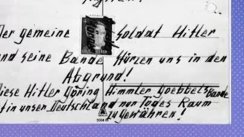 Der gemeine Soldat Hitler
und seine Bande stürzen uns in den
Abgrund!
Diese Hitler Göring Himmler Goebbels Bande
ist in unser Deutschland nur Tages Raum
zu gewähren!